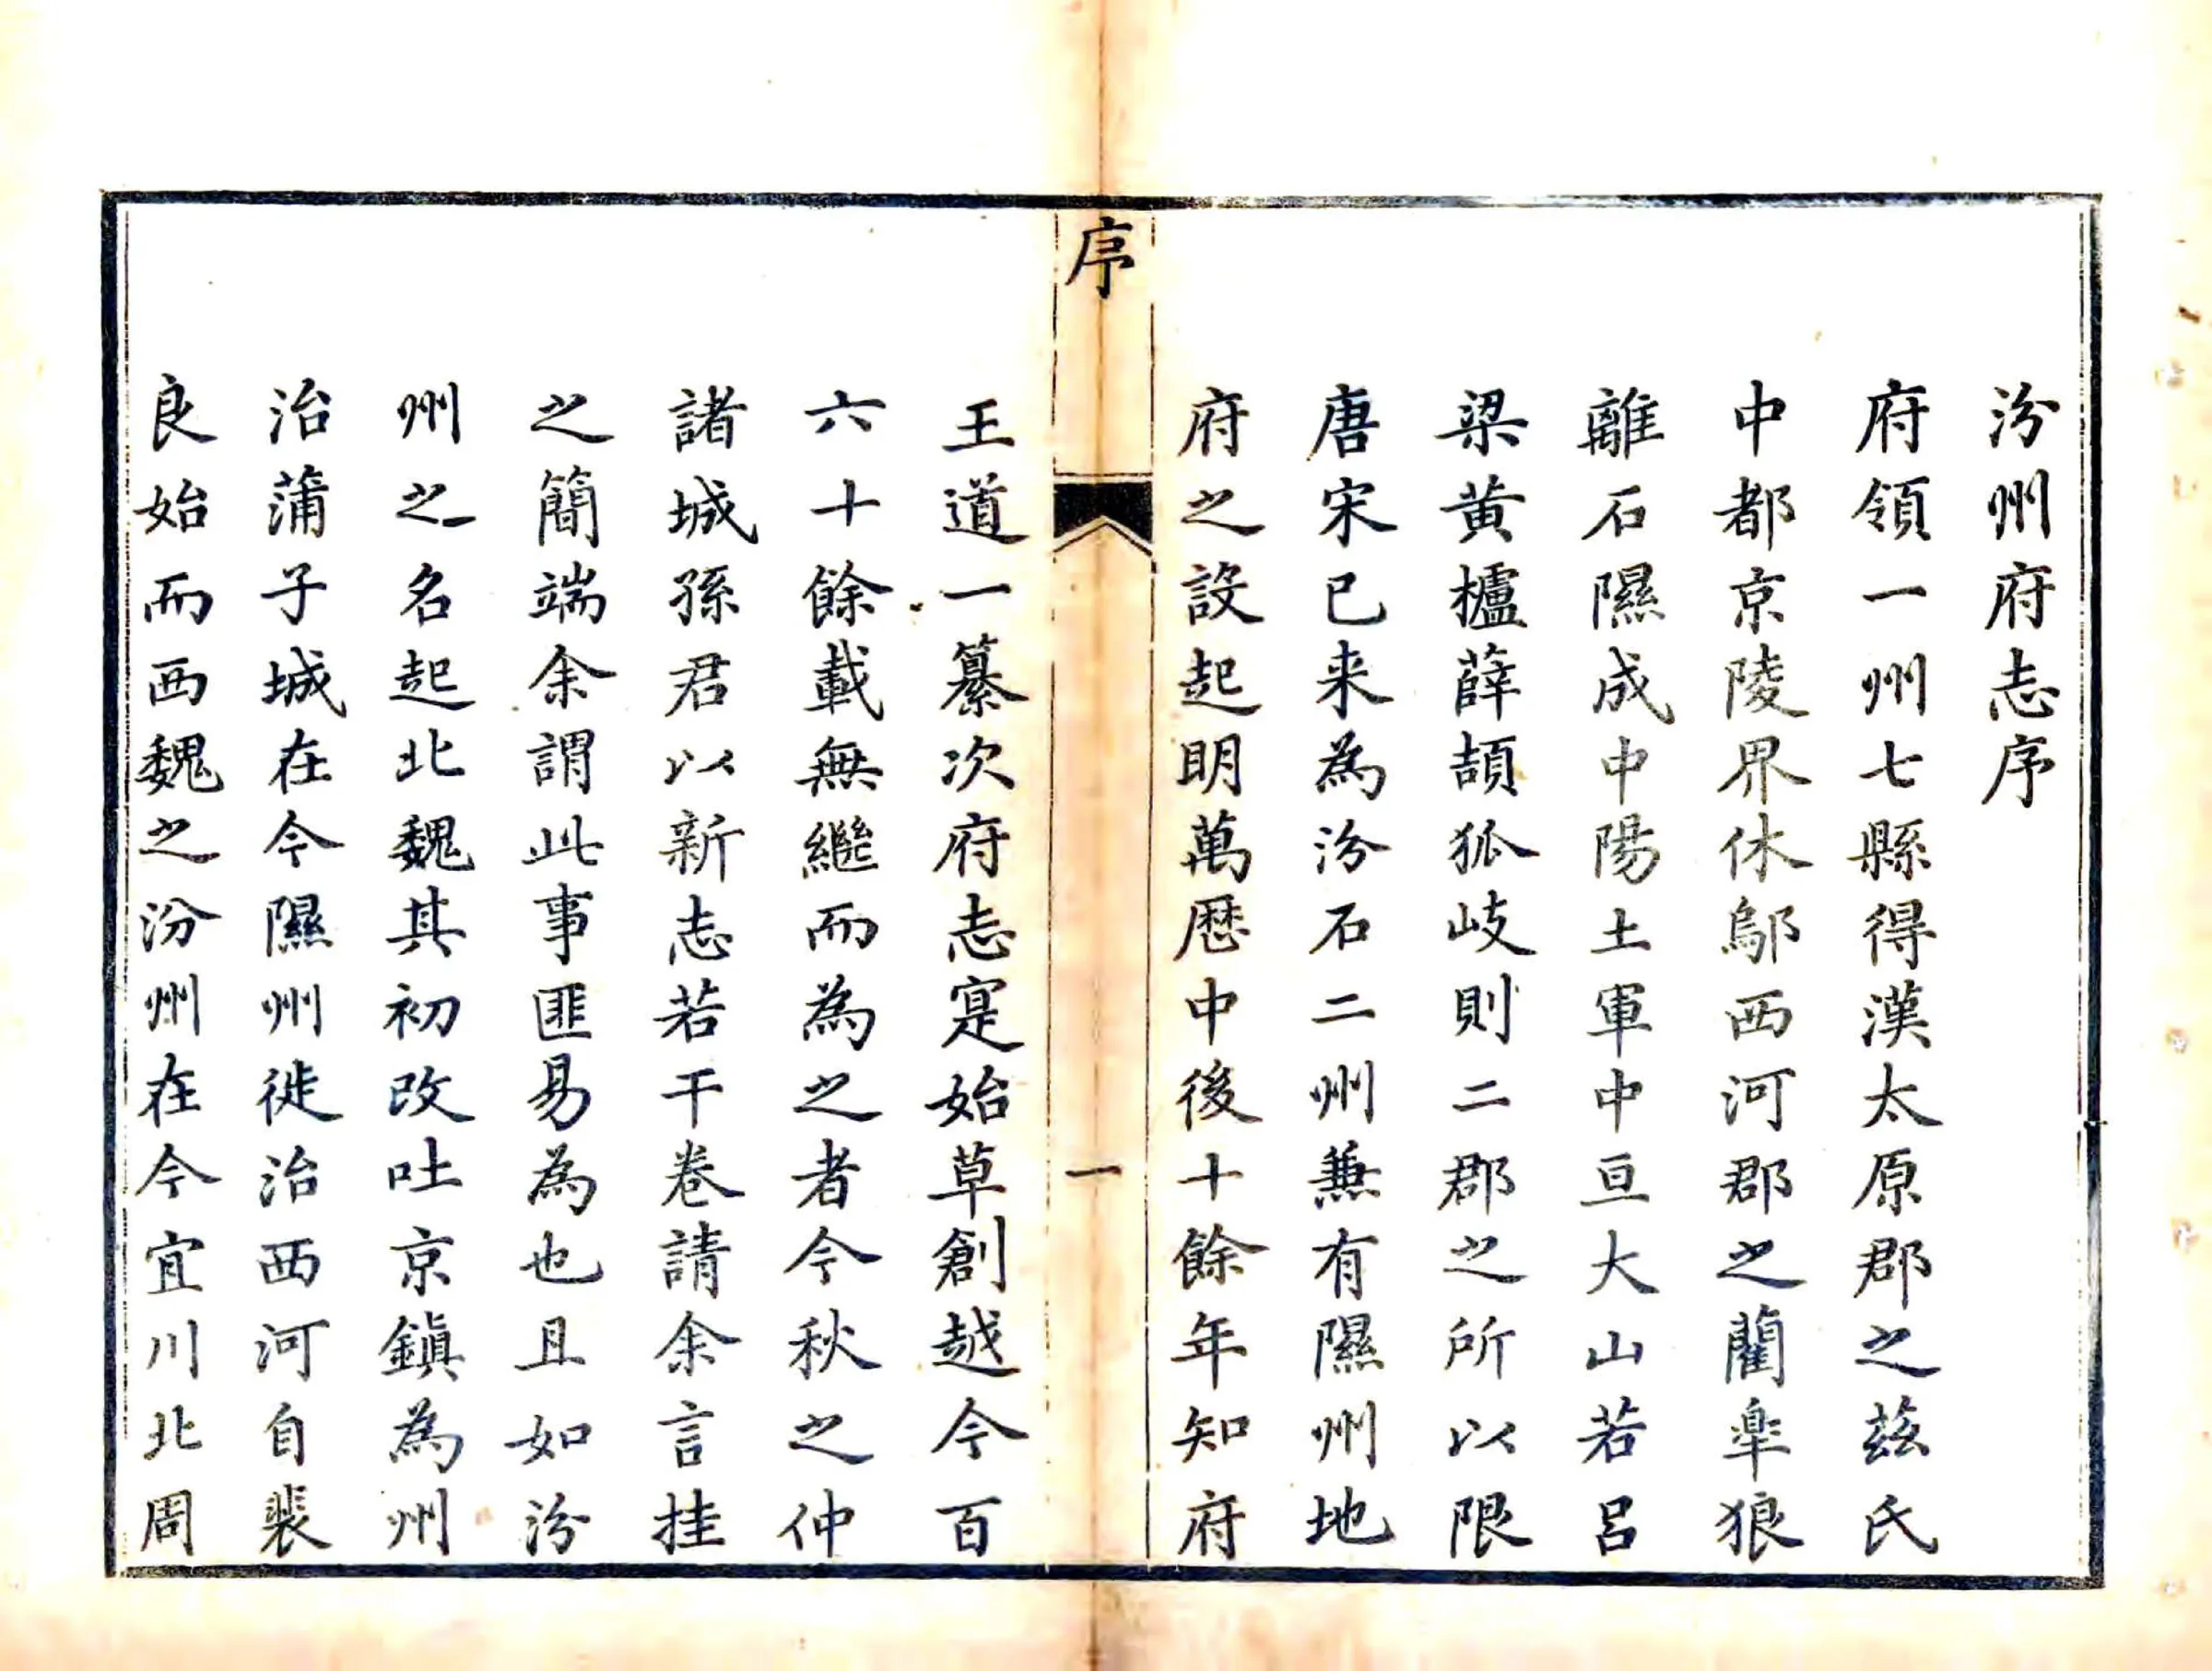 汾州府志序
府領一州七縣得漢太原郡之茲氏
中都京陵界休鄔西河郡之藺皐狼
離石隰成中陽土軍中亘大山若呂
梁黃櫨薛頡狐岐則二郡之所以限
唐宋已来為汾石二州兼有隰州地
府之設起明萬歴中後十餘年知府
序
一
王道一纂次府志寔始草創越今百
六十餘載無繼而為之者今秋之仲
諸城孫君以新志若干卷請余言挂
之簡端余謂此事匪易為也且如汾
州之名起北魏其初改吐京鎮為州
治蒲子城在今隰州徙治西河自裴
良始而西魏之汾州在今宜川北周